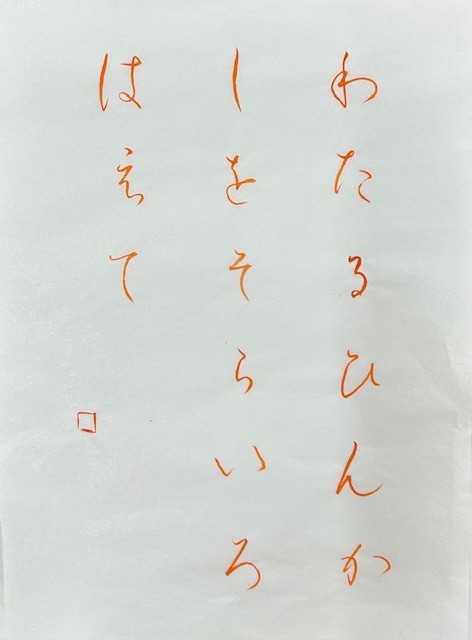 わたるひんか
しをそらいろ
はえて